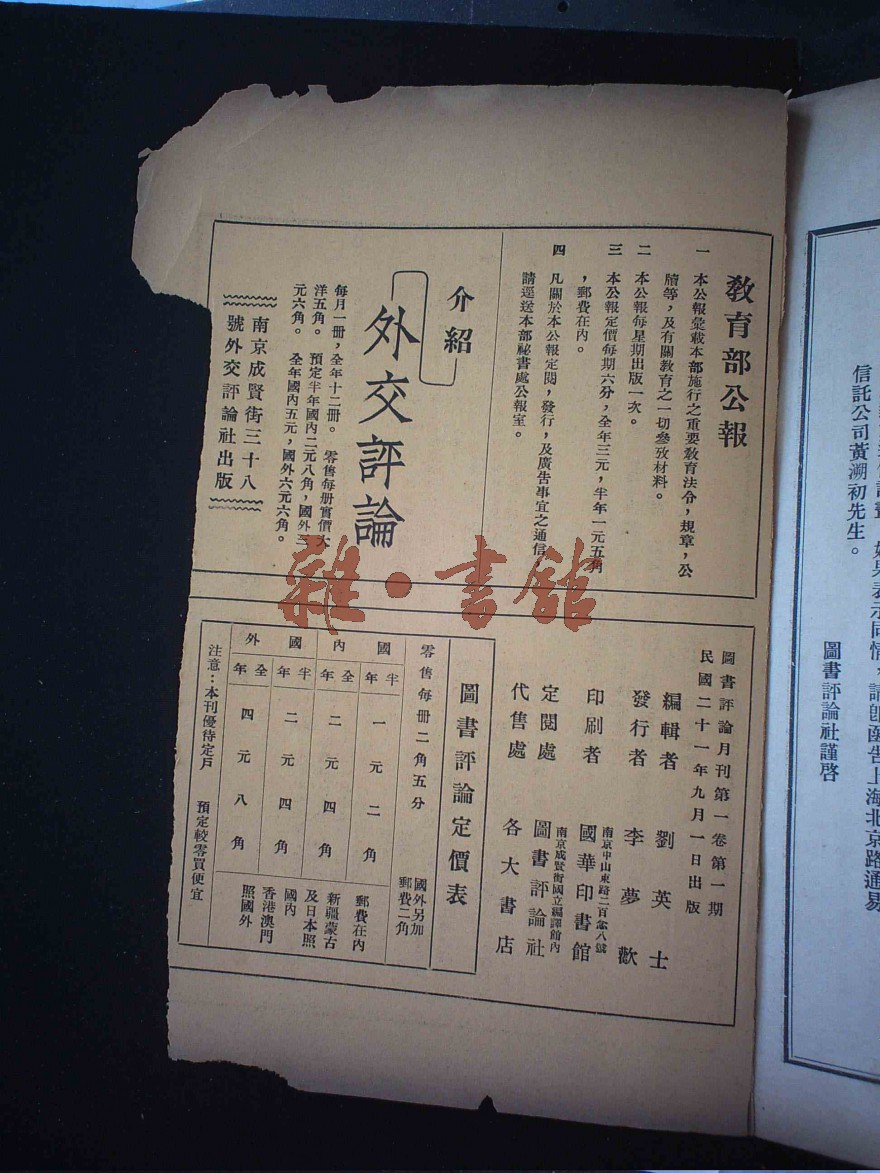 信託公司黃溯初先生。
圖書評論社謹啓
教育部公報
一 本公報彙載本部施行之重要教育法令，規章，公
牘等，及有關教育之一切參攷材料。
二 本公報每星期出版一次。
三 本公報定價每期六分，全年三元，半年一元五角
，郵費在內。
四 凡關於本公報定閱，發行，及廣告事宜之通信，
請逕送本部祕書處公報室。
介紹
外交評論
每月一冊，全年十二冊。 零售每冊實價大
洋五角。 預定半年國內二元八角，國外三
元六角。 全年國內五元，國外六元六角。
南京成賢街三十八
號外交評論社出版
圖書評論月刊第一卷第一期
民國二十一年九月一日出版
編輯者 劉英士
發行者 李夢歡
南京中山東路二百念八號
印刷者 國華印書館
南京成賢街國立編譯館內
定閱處 圖書評論社
代售處 各大書店
圖書評論定價表
零售每冊二角五分 國外另加
郵費二角
國內 半年 一元二角 郵費在內
全年 二元四角 新疆蒙古
及日本照
國內
國外 半年 二元四角 香港澳門
全年 四元八角 照國外
注意：本刊優待定戶 預定較零買便宜
雜·書館